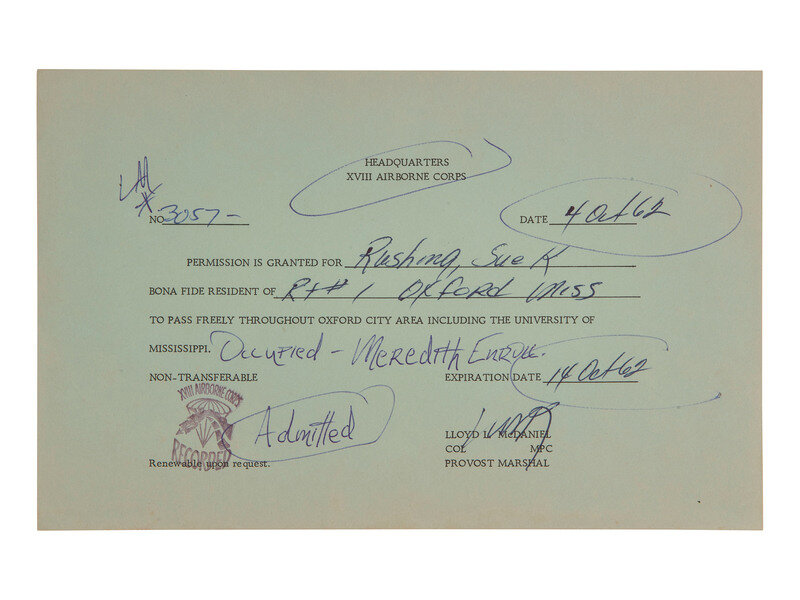 HEADQUARTERS
XVIII AIRBORNE CORPS
NO 3057-
DATE 4 Oct 62
PERMISSION IS GRANTED FOR Rushing, Sue K
BONA FIDE RESIDENT OF Rt# 1 Oxford Miss
TO PASS FREELY THROUGHOUT OXFORD CITY AREA INCLUDING THE UNIVERSITY OF
MISSISSIPPI. Occupied - Meredith Enroll.
NON-TRANSFERABLE
EXPIRATION DATE 14 Oct 62
XVIII AIRBORNE CORPS
RECORDED
Admitted
LLOYD L. McDANIEL
COL MPC
Renewable upon request.
PROVOST MARSHAL